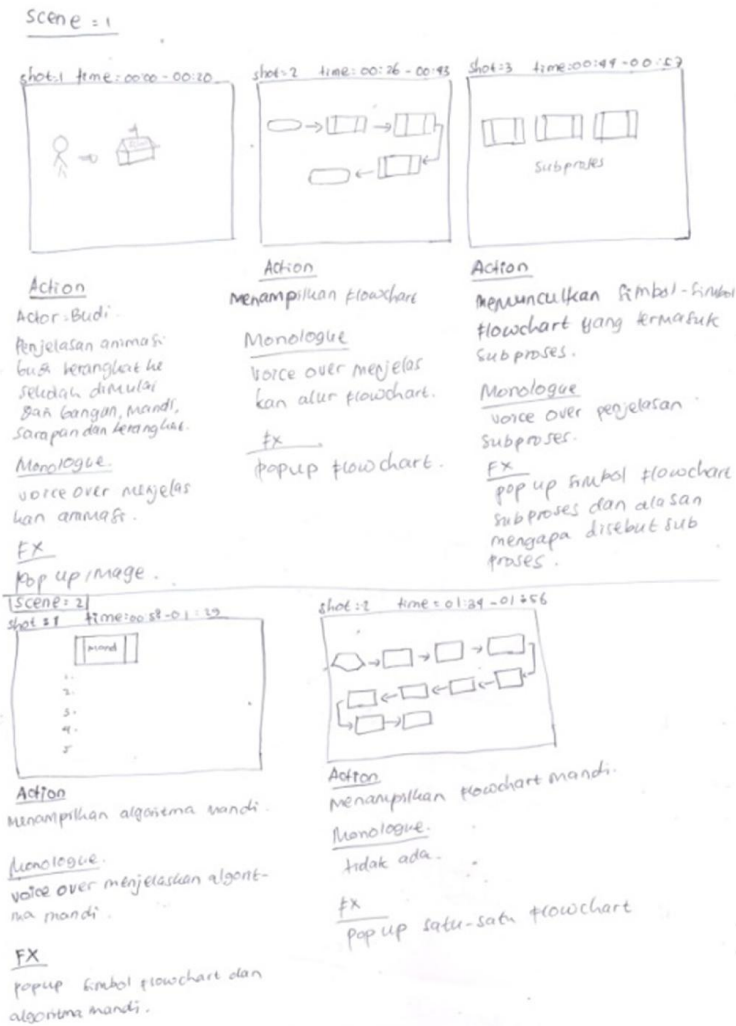 scene = 1
shot:1 time: 00:00 - 00:20
Action
Actor: Budi.
Penjelasan animasi
budi berangkat ke
sekolah dimulai
dari bangun, mandi,
sarapan dan berangkat.
Monologue.
voice over menjelas
kan animasi.
FX
Pop up image.
shot:2 time: 00:26 - 00:43
Action
Menampilkan flowchart
Monologue
voice over menjelas
kan alur flowchart.
FX
popup flowchart.
shot:3 time:00:44 - 00:57
Subproses
Action
memunculkan simbol-simbol
flowchart yang termasuk
subproses.
Monologue
voice over penjelasan
subproses.
FX
pop up simbol flowchart
subproses dan alasan
mengapa disebut sub
proses.
scene: 2
shot:1 time:00:58-01:29
Mandi
1.
2.
3.
4.
5
Action
Menampilkan algoritma mandi.
Monologue.
voice over menjelaskan algorit-
ma mandi.
FX
popup simbol flowchart dan
algoritma mandi.
shot:2 time: 01:34 - 01:56
Action
Menampilkan flowchart mandi.
Monologue.
tidak ada.
FX
Pop up satu-satu flowchart